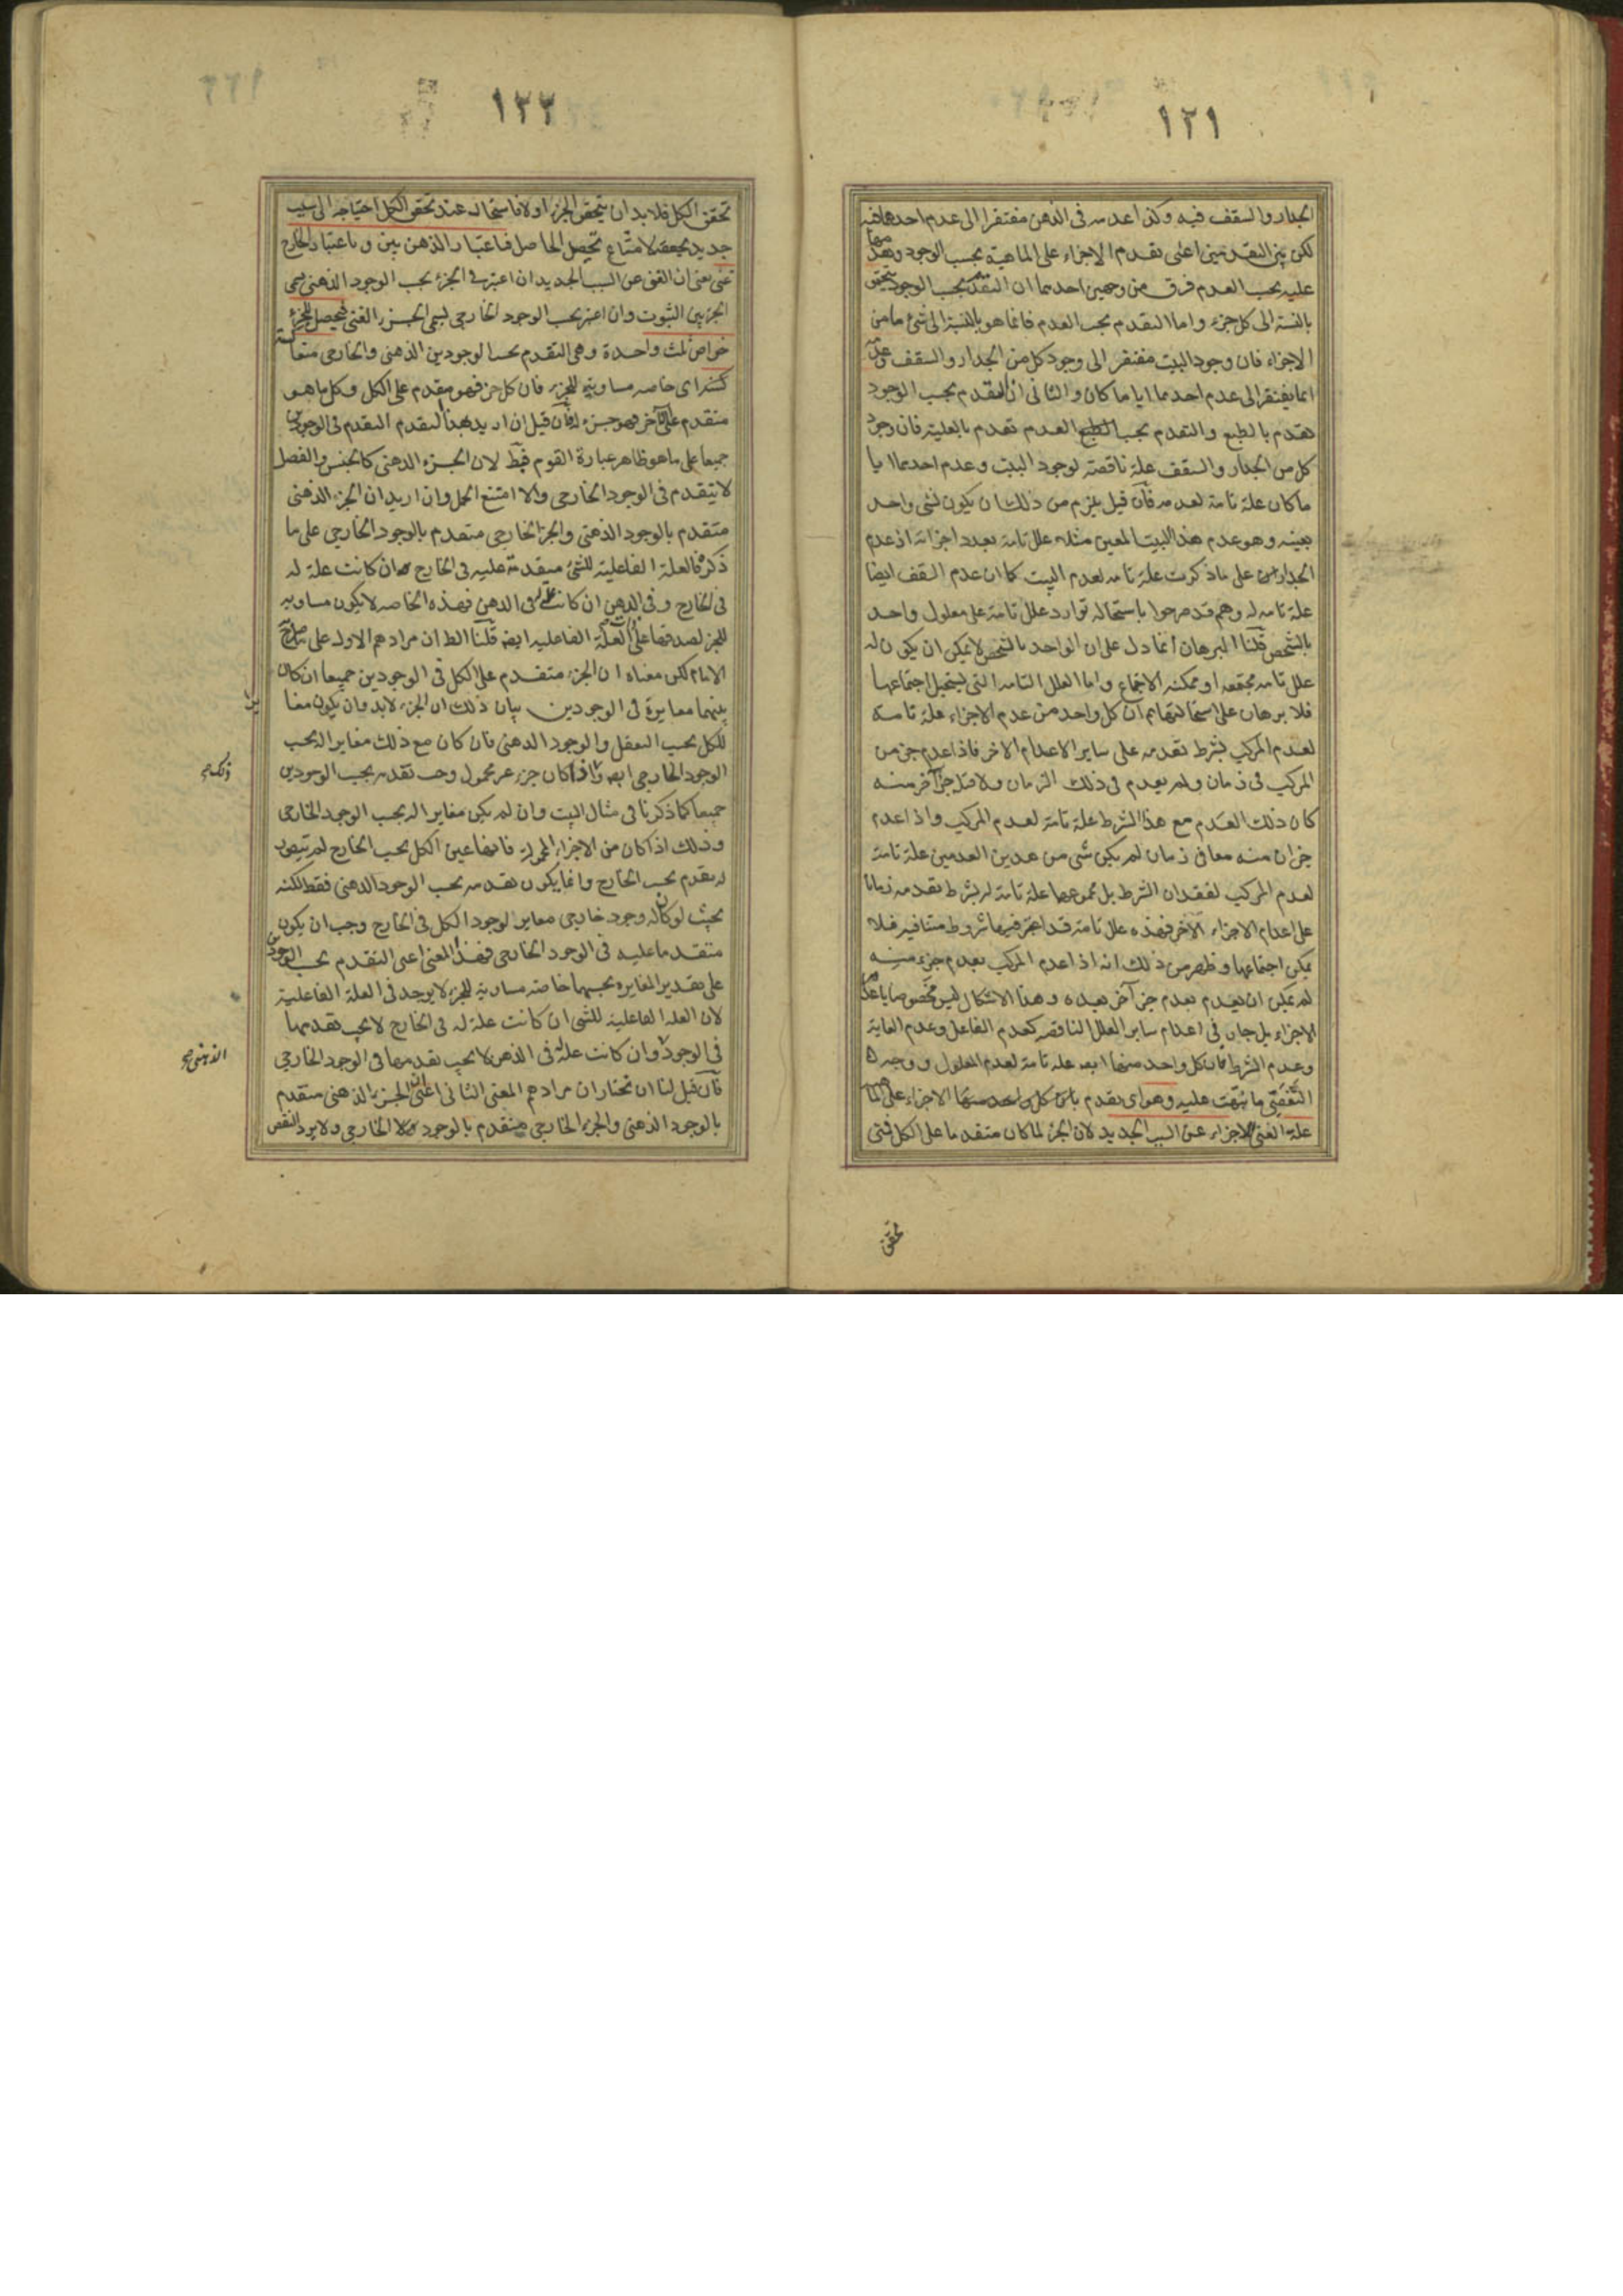 ١٢١
الجدار والسقف فيه وكذا عدمه فى الذهن مفتقرا الى عدم احدهما فيه
لكن بين التقدمين اعنى تقدم الاجزاء على الماهية بحسب الوجود وتقدمها
عليه بحسب العدم فرق من وجهين احدهما ان التقدم بحسب الوجود يتحقق
بالنسبة الى كل جزء واما التقدم بحسب العدم فانما هو بالنسبة الى شئ ما من
الاجزاء فان وجود البيت مفتقر الى وجود كل من الجدار والسقف وعدمه
انما يفتقر الى عدم احدهما ايا ما كان والثانى ان التقدم بحسب الوجود
تقدم بالطبع والتقدم بحسب العدم تقدم بالعلية فان وجود
كل من الجدار والسقف علة ناقصة لوجود البيت وعدم احدهما ايا
ما كان علة تامة لعدمه فان قيل يلزم من ذلك ان يكون لشى واحد
بعينه وهو عدم هذا البيت المعين مثلا علل تامة بعدد اجزائه اذ عدم
الجدار على ما ذكرت علة تامه لعدم البيت كما ان عدم السقف ايضا
علة تامه له وهم قد صرحوا باستحالة توارد علل تامة على معلول واحد
بالشخص قلنا البرهان انما دل على ان الواحد بالشخص لا يمكن ان يكون له
علل تامه مجتمعه او ممكنه الاجتماع واما العلل التامه التى يستحيل اجتماعها
فلا برهان على استحالتها ثم ان كل واحد من عدم الاجزاء علة تامة
لعدم المركب بشرط تقدمه على ساير الاعدام الاخر فاذا عدم جزء من
المركب فى زمان ولم يعدم فى ذلك الزمان ولا قبله جزء آخر منه
كان ذلك العدم مع هذا الشرط علة تامة لعدم المركب واذا عدم
جزان منه معا فى زمان لم يكن شى من هذين العدمين علة تامة
لعدم المركب لفقدان الشرط بل مجموعهما علة تامة له بشرط تقدمه زمانا
على اعدام الاجزاء الآخر فهذه علل تامة قد اعتبر فيها شروط متنافية فلا
يمكن اجتماعها وظهر من ذلك انه اذا عدم المركب بعدم جزء منه
لم يمكن ان يعدم بعدم جزء آخر بعده وهذا الاشكال ليس مخصوصا باعدام
الاجزاء بل جار فى اعدام ساير العلل الناقصه كعدم الفاعل وعدم الغاية
وعدم الشرط فان كل واحد منها ايضا علة تامة لعدم المعلول ووجه
التفصى ما نبهت عليه وهو اى تقدم الاجزاء على الماهية
علة الغنى للاجزاء عن السبب الجديد لان الجزء لما كان متقدما على الكل فمتى
تحقق
١٢٢
تحقق الكل فلا بد ان يتحقق الجزء اولا فاستحاله عند تحقق الكل احتياجه الى سبب
جديد يحققه لامتناع تحصيل الحاصل فباعتبار الذهن بين وباعتبار الخارج
غنى يعنى ان الغنى عن السبب الجديد ان اعتبر فى الجزء بحسب الوجود الذهنى يسمى
الجزء بين الثبوت وان اعتبر بحسب الوجود الخارجى يسمى الجزء الغنى فيحصل للجزء
خواص ثلث واحدة وهى التقدم بحسب الوجودين الذهنى والخارجى متعا
كسة اى خاصه مساوية للجزء فان كل جزء فهو مقدم على الكل وكل ما هو
متقدم على الآخر فهو جزء له فان قيل ان اريد بهذا التقدم التقدم فى الوجودين
جميعا على ما هو ظاهر عبارة القوم فبط لان الجزء الذهنى كالجنس والفصل
لا يتقدم فى الوجود الخارجى والا امتنع الحمل وان اريد ان الجزء الذهنى
متقدم بالوجود الذهنى والجزء الخارجى متقدم بالوجود الخارجى على ما
ذكره فالعلة الفاعلية للشئ متقدمة عليه فى الخارج ان كانت علة له
فى الخارج وفى الذهن ان كانت علة له فى الذهن فهذه الخاصه لا يكون مساويه
للجزء لصدقها على العلة الفاعليه ايضا قلنا الظ ان مرادهم الاول على ما صرح به
الامام لكن معناه ان الجزء متقدم على الكل فى الوجودين جميعا ان كان
بينهما مغايرة فى الوجودين بيان ذلك ان الجزء لابد وان يكون مغا
يرا
للكل بحسب التعقل والوجود الذهنى فان كان مع ذلك مغايرا له بحسب
الوجود الخارجى ايضا وذلك اذا كان جزء غير محمول وجب تقدمه بحسب الوجودين
ذلك صح
جميعا كما ذكرنا فى مثال البيت وان لم يكن مغايرا له بحسب الوجود الخارجى
وذلك اذا كان من الاجزاء المحمولة فانها عين الكل بحسب الخارج لم يتصور
له تقدم بحسب الخارج وانما يكون تقدمه بحسب الوجود الذهنى فقط لكنه
بحيث لو كان له وجود خارجى مغاير لوجود الكل فى الخارج وجب ان يكون
متقدما عليه فى الوجود الخارجى فهذا المعنى اعنى التقدم بحسب الوجودين
على تقدير المغايرة بحسبهما خاصه مساوية للجزء لا يوجد فى العلة الفاعلية
لان العلة الفاعلية للشئ ان كانت علة له فى الخارج لا يجب تقدمها
فى الوجود الذهنى وان كانت علة له فى الذهن لا يجب تقدمها فى الوجود الخارجى
الذهنى صح
فان قيل لنا ان نختار ان مرادهم المعنى الثانى اعنى ان الجزء الذهنى متقدم
بالوجود الذهنى والجزء الخارجى متقدم بالوجود الخارجى ولا يرد النقض